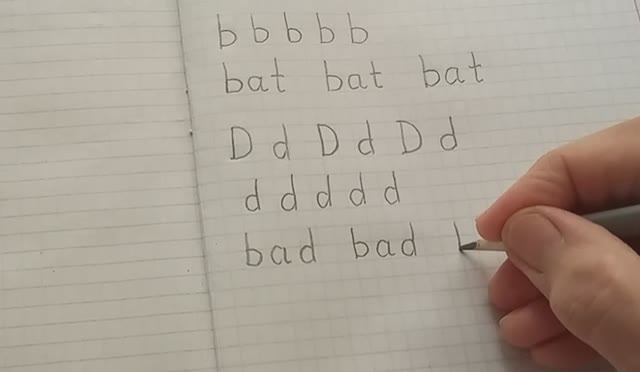 b b b b b
bat bat bat
D d D d D d
d d d d d
bad bad